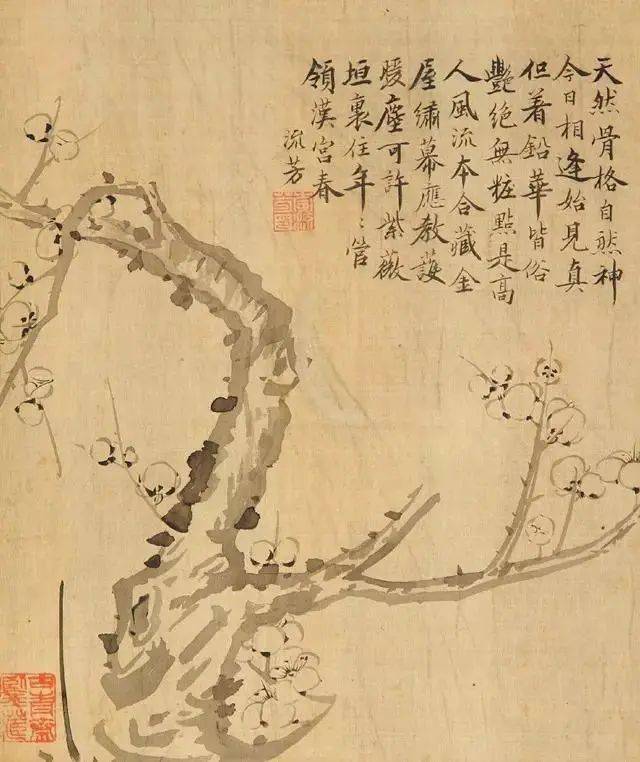 天然骨格自然神
今日相逢始見真
但着鉛華皆俗
艷絕無粧點是高
人風流本合藏金
屋繡幕應教護
暖塵可許紫薇
垣裏住年〻管
領漢宮春
流芳